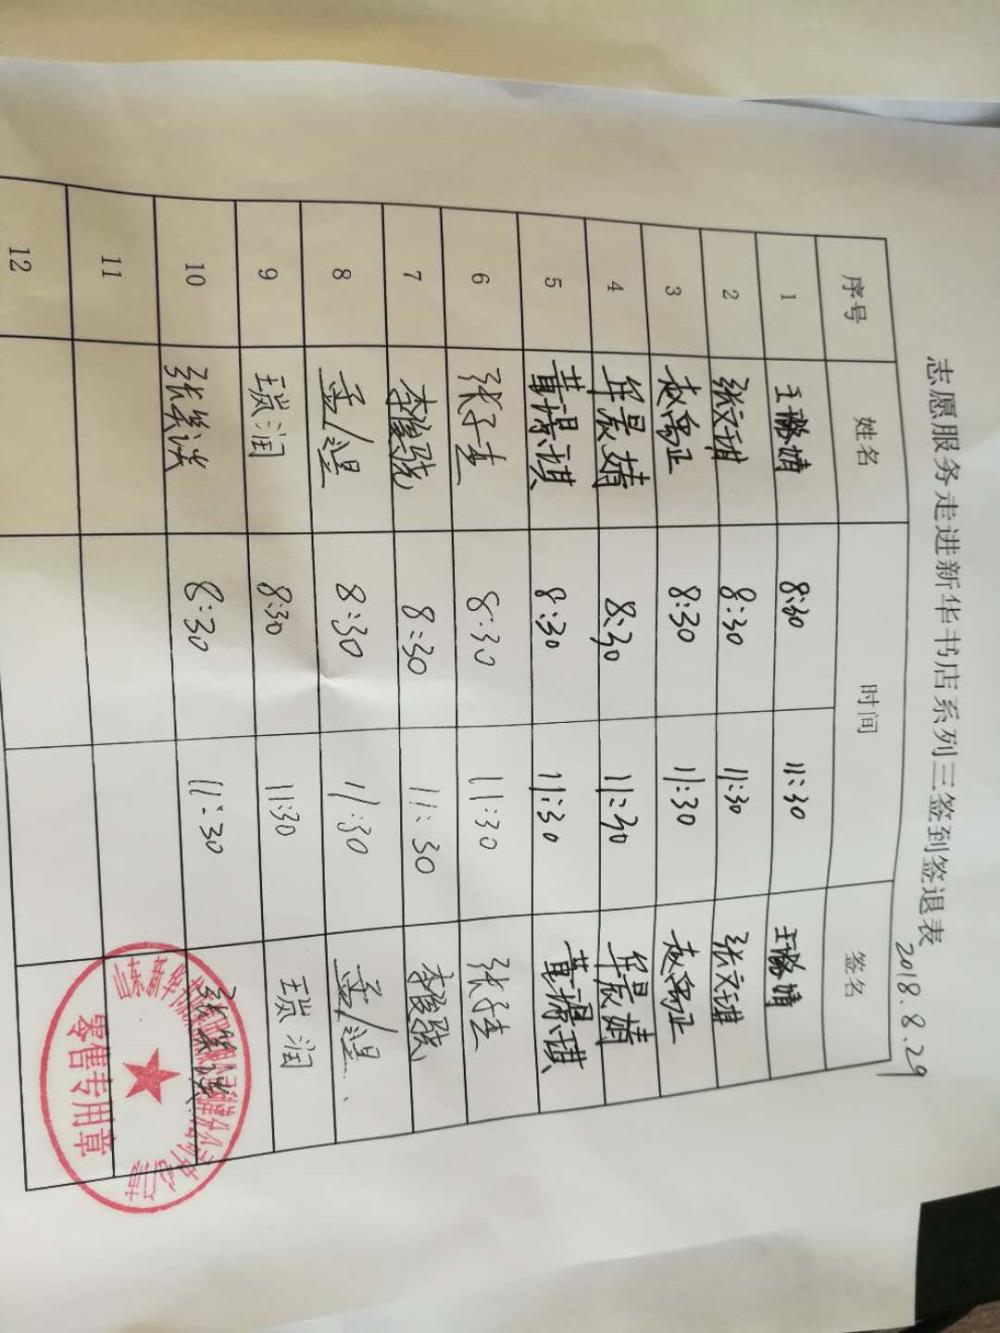 志愿服务走进新华书店系列三签到签退表
2018.8.29
序号 姓名 时间 签名
1 王璐婧 8:30 11:30 王璐婧
2 张文琪 8:30 11:30 张文琪
3 赵禹正 8:30 11:30 赵禹正
4 牟晨婧 8:30 11:30 牟晨婧
5 黄湜琪 8:30 11:30 黄湜琪
6 张子圭 8:30 11:30 张子圭
7 李俊骁 8:30 11:30 李俊骁
8 8:30 11:30
9 润 8:30 11:30 润
10 张笑 8:30 11:30 张笑
11
12
零售专用章